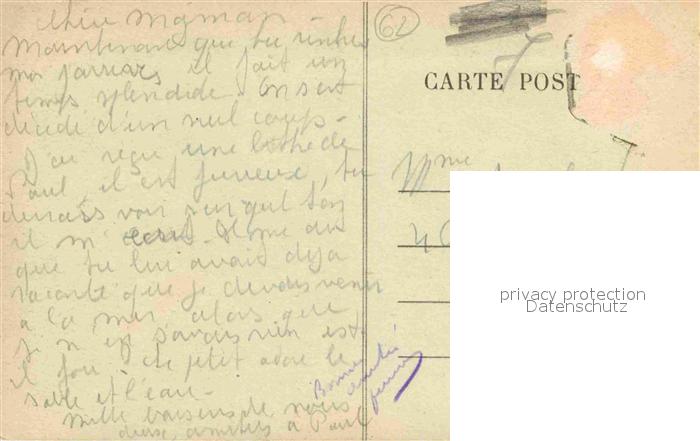 Chère Maman
Maintenant que tu
il fait un
temps splendide. On s'est
décidé d'un seul coup -
J'ai reçu une lettre de
Paul, il est furieux, tu
devrais voir sur quel ton
il m'écrit. Il me dit
que tu lui avait déjà
raconté que je devais venir
à la mer alors que
je n'en savais rien est-
il fou. Le petit adore le
sable et l'eau -
Mille baisers de nous
deux, amitiés à Paul
Bonne
amitié
62
CARTE POST
Mme
privacy protection
Datenschutz